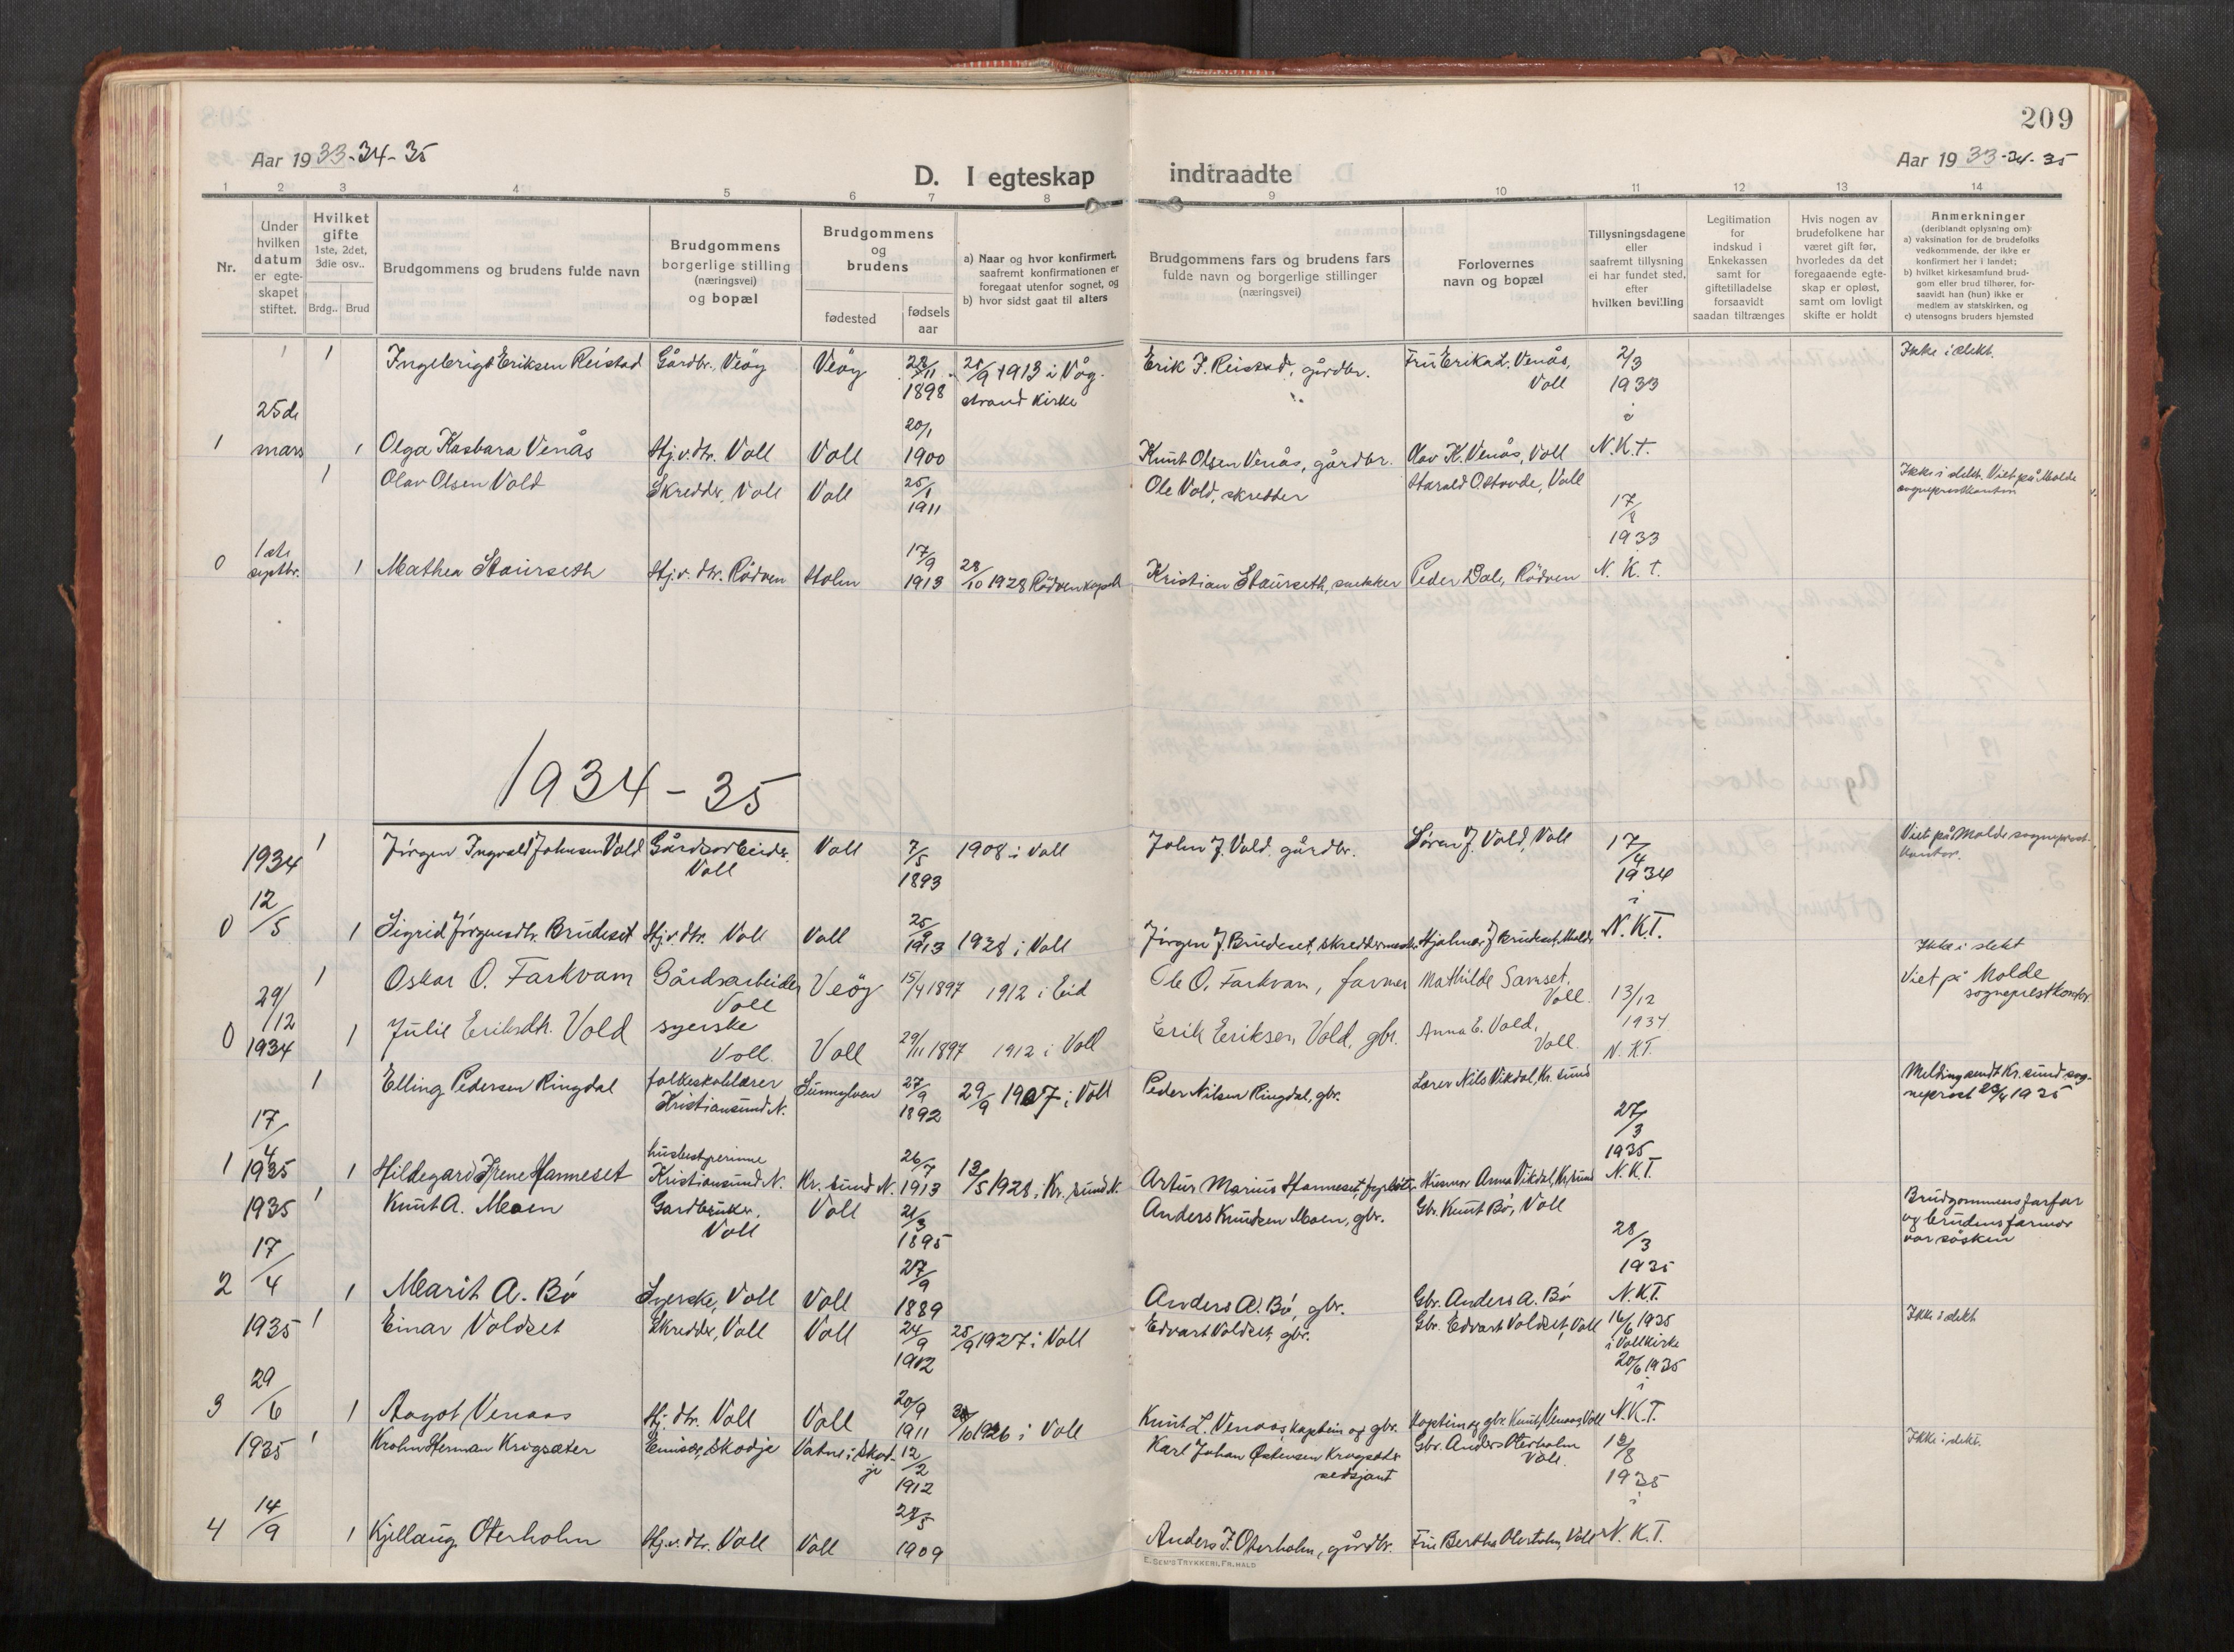 209
Aar 1933-34-35
Aar 1933-34-35
D. I egteskap indtraadte
1 2 3 4 5 6 7 8 9 10 11 12 13 14
Nr.
Under hvilken datum er egteskapet stiftet.
Hvilket gifte 1ste, 2det, 3die osv..
Brdg.. Brud
Brudgommens og brudens fulde navn
Brudgommens borgerlige stilling (næringsvei) og bopæl
Brudgommens og brudens
fødested
fødsels aar
a) Naar og hvor konfirmert, saafremt konfirmationen er foregaat utenfor sognet, og
b) hvor sidst gaat til alters
Brudgommens fars og brudens fars fulde navn og borgerlige stillinger (næringsvei)
Forlovernes navn og bopæl
Tillysningsdagene eller saafremt tillysning ei har fundet sted, efter hvilken bevilling
Legitimation for indskud i Enkekassen samt for giftetilladelse forsaavidt saadan tiltrænges
Hvis nogen av brudefolkene har været gift før, hvorledes da det foregaaende egteskap er opløst, samt om lovligt skifte er holdt
Anmerkninger (deriblandt oplysning om):
a) vaksination for de brudefolks vedkommende, der ikke er konfirmert her i landet;
b) hvilket kirkesamfund brudgom eller brud tilhører, forsaavidt han (hun) ikke er medlem av statskirken, og
c) utensogns bruders hjemsted
1 Ingebrigt Eriksen Reistad Gårdbr., Veøy Veøy 1898 1913 i Våg-
strand kirke Erik J. Reistad, gårdbr. Fru Erika L. Venås, Voll 2/3 1933 i Ikke i slekt.
1 25de mars 1 Olga Kasbara Venås Hj.v.dtr. Voll Voll 20/1 1900 Knut Olsen Venås, gårdbr. Olav K. Venås, Voll N.K.T.
1 Olav Olsen Vold Skredder, Voll Voll 25/1 1911 Ole Vold, skredder Voll 17/8 1933 Ikke i slekt. Viet på Molde
sogneprestkontor
0 1ste septbr. 1 Mathea Staurseth Hj.v.dtr. Rödven Holm 17/9 1913 28/10 1928 Rödven kapell Kristian Staurseth, snekker Peder Dale, Rödven N.K.T.
1934-35
1934 1 Jörgen Ingvald Johnsen Vold Gårdsarbeider, Voll Voll 7/5 1893 1908 i Voll John J. Vold, gårdbr. Sören J. Vold, Voll 17/4 1934 i Viet på Molde sogneprest-
kontor.
0 12/5 1 Sigrid Jörgensdtr. Brudeset Hj.v.dtr. Voll Voll 25/9 1913 1928 i Voll Jörgen J. Brudeset, skreddermester Hjalmar J. Brudeset, Molde N.K.T. Ikke i slekt
1 Oskar O. Farkvam Gårdsarbeider Voll Veøy 15/4 1897 1912 i Eid Ole O. Farkvam, farmer Mathilde Samset, Voll. 13/12 1934 Viet på Molde
sogneprestkontor
0 29/12 1934 1 Julie Eriksdtr. Vold syerske Voll. Voll 29/11 1897 1912 i Voll Erik Eriksen Vold, gbr. Anna E. Vold, Voll. N.K.T.
1 Elling Pedersen Ringdal folkeskolelærer Kristiansund N. Sunnylven 27/9 1892 29/9 1907 i Voll Peder Nilsen Ringdal, gbr. Lærer Nils Vikdal, Kr.sund 27/3 1935 Melding sendt Kr.sund sog-
neprest 23/4 1935
1 17/4 1935 1 Hildegard Irene Hanneset husbestyrerinne Kristiansund N. Kr.sund N. 26/7 1913 13/5 1928 i Kr.sund N. Artur Marius Hanneset, fyrbøter Husmor Anna Vikdal, Kr.sund N.K.T.
1935 1 Knut A. Moen Gardbruker, Voll Voll 21/3 1895 Anders Knudsen Moen, gbr. Gbr. Knut Bö, Voll 28/3 1935 Brudgommens farfar
og brudens farmor
var søsken
2 17/4 1 Marit A. Bö Syerske, Voll Voll 27/9 1889 Anders A. Bö, gbr. Gbr. Anders A. Bö N.K.T.
1935 1 Einar Voldset Skredder, Voll Voll 24/9 1912 25/9 1927 i Voll Edvart Voldset, gbr. Gbr. Edvart Voldset, Voll 16/6 1935 i Voll kirke 20/6 1935 i Ikke i slekt
3 29/6 1 Aagot Venaas Hj. dtr. Voll Voll 20/9 1911 1926 i Voll Knut L. Venaas, kaptein og gbr. Kaptein og gbr. Knut Venaas, Voll N.K.T.
1935 1 Krohn Herman Krogsæter Emissær, Skodje Vatne i Skod-
je 12/2 1912 Karl Johan Østensen Krogsæter
sersjant Gbr. Anders Oterholm Voll. 1935 i Ikke i slekt.
4 14/9 1 Kjellaug Oterholm Hj.v.dtr. Voll Voll 1909 Anders J. Oterholm, gårdbr. Fru Bertha Oterholm, Voll N.K.T.
E. SEM'S TRYKKERI, FR.HALD